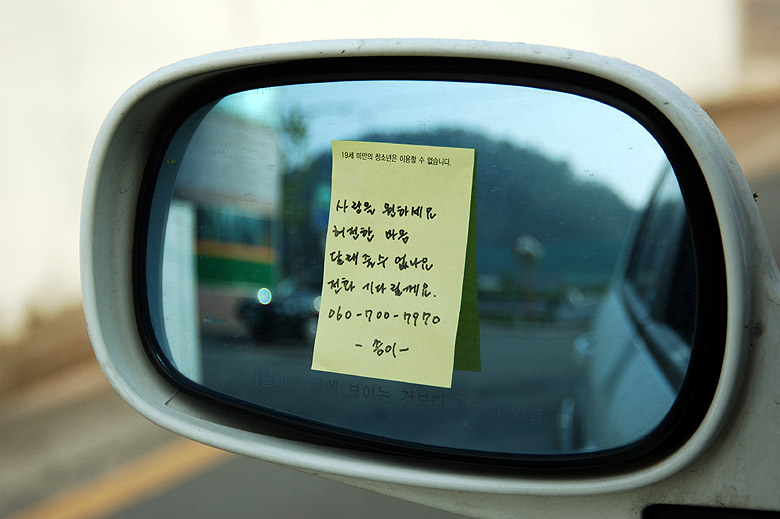 19세 미만의 청소년은 이용할 수 없습니다.
사랑을 원하세요
허전한 마음
달래줄수 없나요
전화 기다릴께요.
060-700-7970
- 송이 -
보이는 것보다